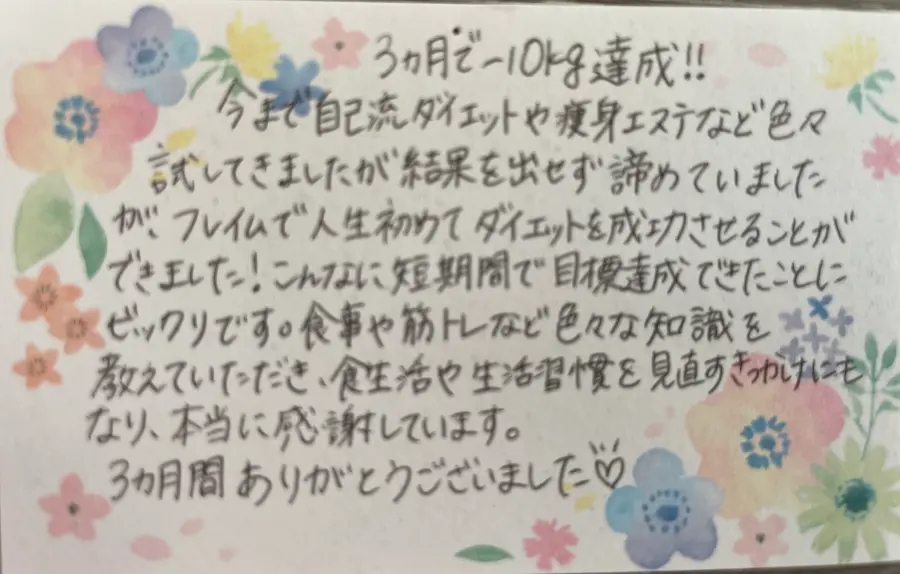 3ヵ月で-10kg達成!!
今まで自己流ダイエットや痩身エステなど色々
試してきましたが結果を出せず諦めていました
が、フレイムで人生初めてダイエットを成功させることが
できました!こんなに短期間で目標達成できたことに
ビックリです。食事や筋トレなど色々な知識を
教えていただき、食生活や生活習慣を見直すきっかけにも
なり、本当に感謝しています。
3ヵ月間ありがとうございました♡